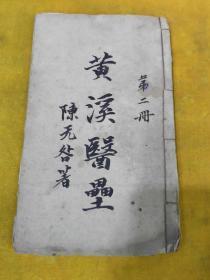 第二冊
黃溪醫壘
陳无咎著